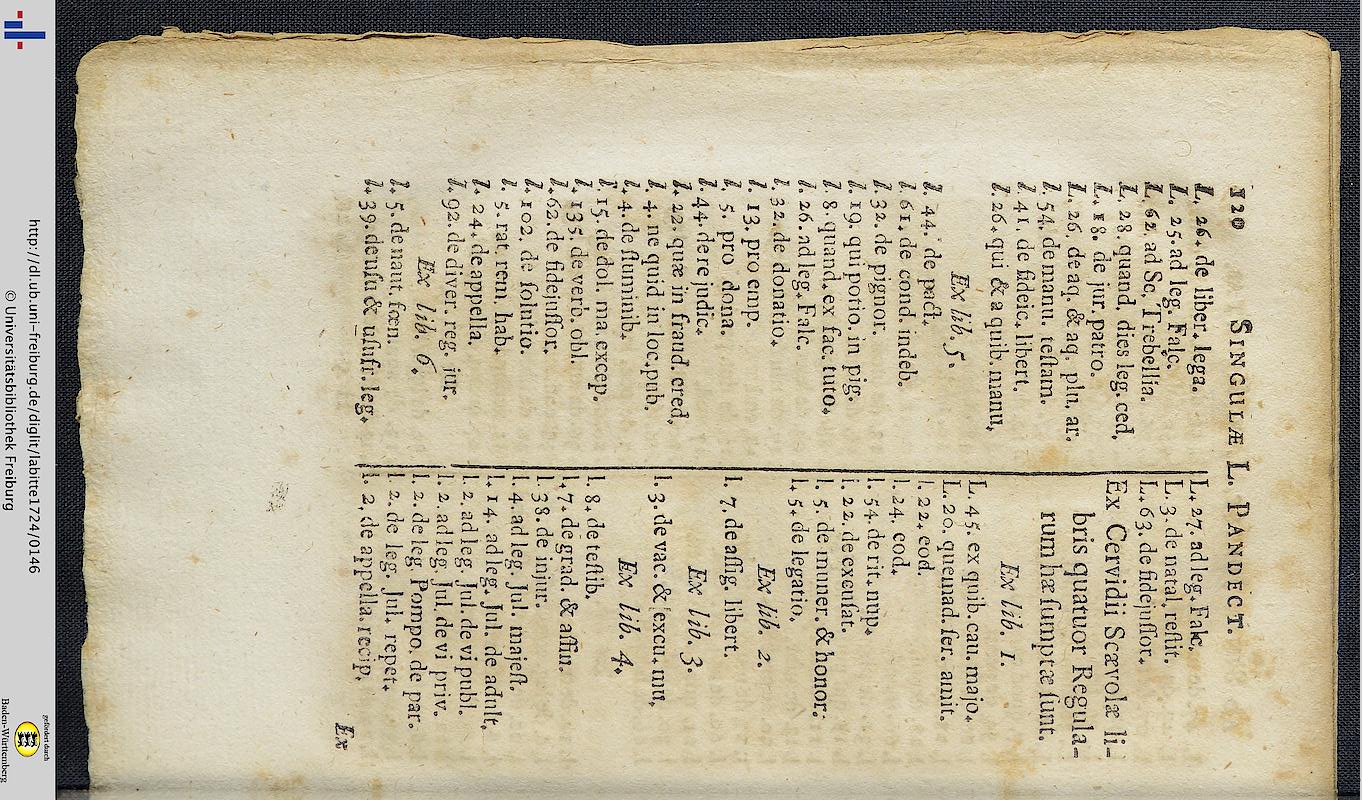 120 SINGULÆ L. PANDECT.
L. 26. de liber. lega.
L. 25. ad leg. Falc.
L. 62. ad Sc. Trebellia.
L. 28. quand. dies leg. ced.
L. 18. de jur. patro.
L. 26. de aq. & aq. plu. ar.
l. 54. de manu. testam.
l. 41. de fideic. libert.
l. 26. qui & a quib. manu.
Ex lib. 5.
l. 44. de pact.
l. 61. de cond. indeb.
l. 32. de pignor.
l. 19. qui potio. in pig.
l. 8. quand. ex fac. tuto.
l. 26. ad leg. Falc.
l. 32. de donatio.
l. 13. pro emp.
l. 5. pro dona.
l. 44. de re judic.
l. 22. quæ in fraud. cred.
l. 4. ne quid in loc. pub.
l. 4. de fluminib.
l. 15. de dol. ma. excep.
l. 135. de verb. obl.
l. 62. de fidejussor.
l. 102. de solutio.
l. 5. rat. rem. hab.
l. 24. de appella.
l. 92. de diver. reg. jur.
Ex lib. 6.
l. 5. de naut. fœn.
l. 39. de usu & usufr. leg.
L. 27. ad leg. Falc.
L. 3. de natal. restit.
L. 63. de fidejussor.
Ex Cervidii Scævolæ li-
bris quatuor Regula-
rum hæ sumptæ sunt.
Ex lib. 1.
L. 45. ex quib. cau. majo.
L. 20. quemad. ser. amit.
l. 22. eod.
l. 24. eod.
l. 54. de rit. nup.
l. 22. de excusat.
l. 5. de muner. & honor.
l. 5. de legatio.
Ex lib. 2.
l. 7. de assig. libert.
Ex lib. 3.
l. 3. de vac. & excu. mu.
Ex lib. 4.
l. 8. de testib.
l. 7. de grad. & affin.
l. 38. de injur.
l. 4. ad leg. Jul. majest.
l. 14. ad leg. Jul. de adult.
l. 2. ad leg. Jul. de vi publ.
l. 2. ad leg. Jul. de vi priv.
l. 2. de leg. Pompo. de par.
l. 2. de leg. Jul. repet.
l. 2. de appella. recip.
Ex
http://dl.ub.uni-freiburg.de/diglit/labitte1724/0146
© Universitätsbibliothek Freiburg
gefördert durch
Baden-Württemberg